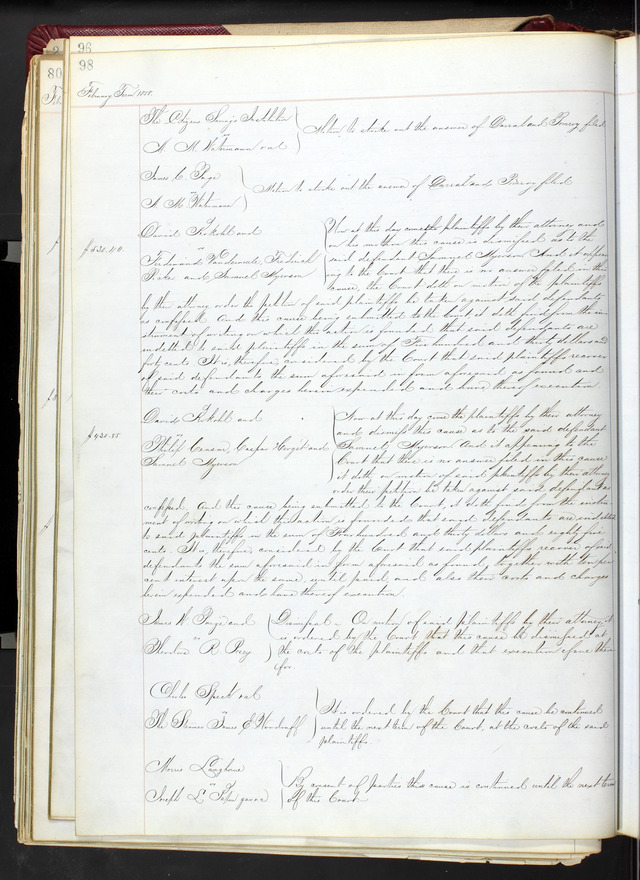 96
98
80
February Term 1858.
The Citizens Savings Institution
vs
A. M. Waterman et al
Motion to strike out the answer of Darral and Pomroy filed
James C. Page
vs
A. M. Waterman
Motion to strike out the answer of Darral and Pomroy filed
$430.40.
David et al and
vs
Ferdinand Frederick
and Samuel Myerson
Now at this day come the plaintiffs by their attorney and
on his motion this cause is dismissed as to the
said defendant Samuel Myerson And it appear-
ing to the Court that there is no answer filed in this
cause, the Court doth on motion of the plaintiffs
by their attorney order the petition of said plaintiffs to be taken against said defendants
as confessed. And this cause being submitted to the Court it doth find from the in-
strument of writing on which the action is founded that said defendants are
indebted to said plaintiffs in the sum of Four hundred and thirty dollars and
forty cents It is, therefore, considered by the Court that said plaintiffs recover
of said defendants the sum aforesaid in form aforesaid as found and
their costs and charges herein expended and have thereof execution
$430.85
David et al and
vs
Philip Caspar and
Samuel Myerson
Now at this day come the plaintiffs by their attorney
and dismiss this cause as to the said defendant
Samuel Myerson And it appearing to the
Court that there is no answer filed in this cause
it doth on motion of said plaintiffs by their attorney
order their petition be taken against said defendants as
confessed. And this cause being submitted to the Court, it doth find from the instru-
ment of writing on which this action is founded that said defendants are indebted
to said plaintiffs in the sum of Four hundred and thirty dollars and eighty five
cents. It is, therefore, considered by the Court that said plaintiffs recover of said
defendants the sum aforesaid in form aforesaid as found, together with ten per
cent interest upon the same, until paid, and also their costs and charges
herein expended and have thereof execution.
James W. Page and
vs
Theodore R.
Dismissed – On motion of said plaintiffs by their attorney, it
is ordered by the Court that this cause be dismissed at
the costs of the plaintiffs and that execution issue there-
for
Charles Speck et al
vs
The Steamer James E. Woodruff
It is ordered by the Court that this cause be continued
until the next term of the Court, at the costs of the said
plaintiffs.
Morris Langhorne
vs
Joseph L. Papin
By consent of parties this cause is continued until the next term
of this Court.